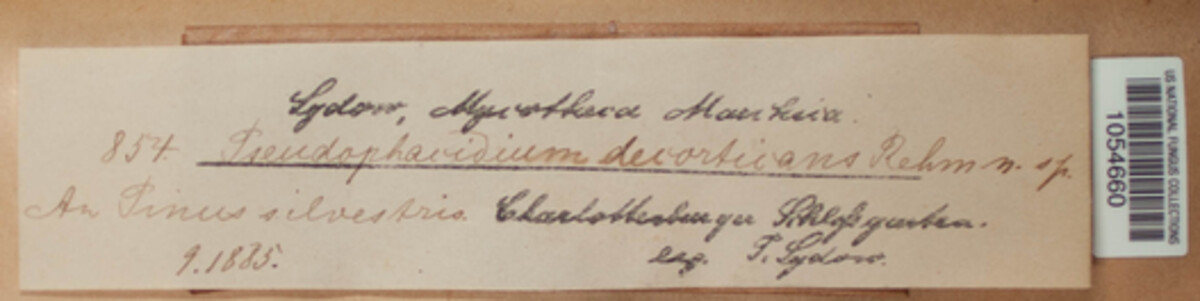 Sydow, Mycotheca Marchica.
854. Pseudophacidium decorticans Rehm n. sp.
An Pinus silvestris. Charlottenburger Schloßgarten.
9.1885. leg. P. Sydow.
US NATIONAL FUNGUS COLLECTIONS
1054660